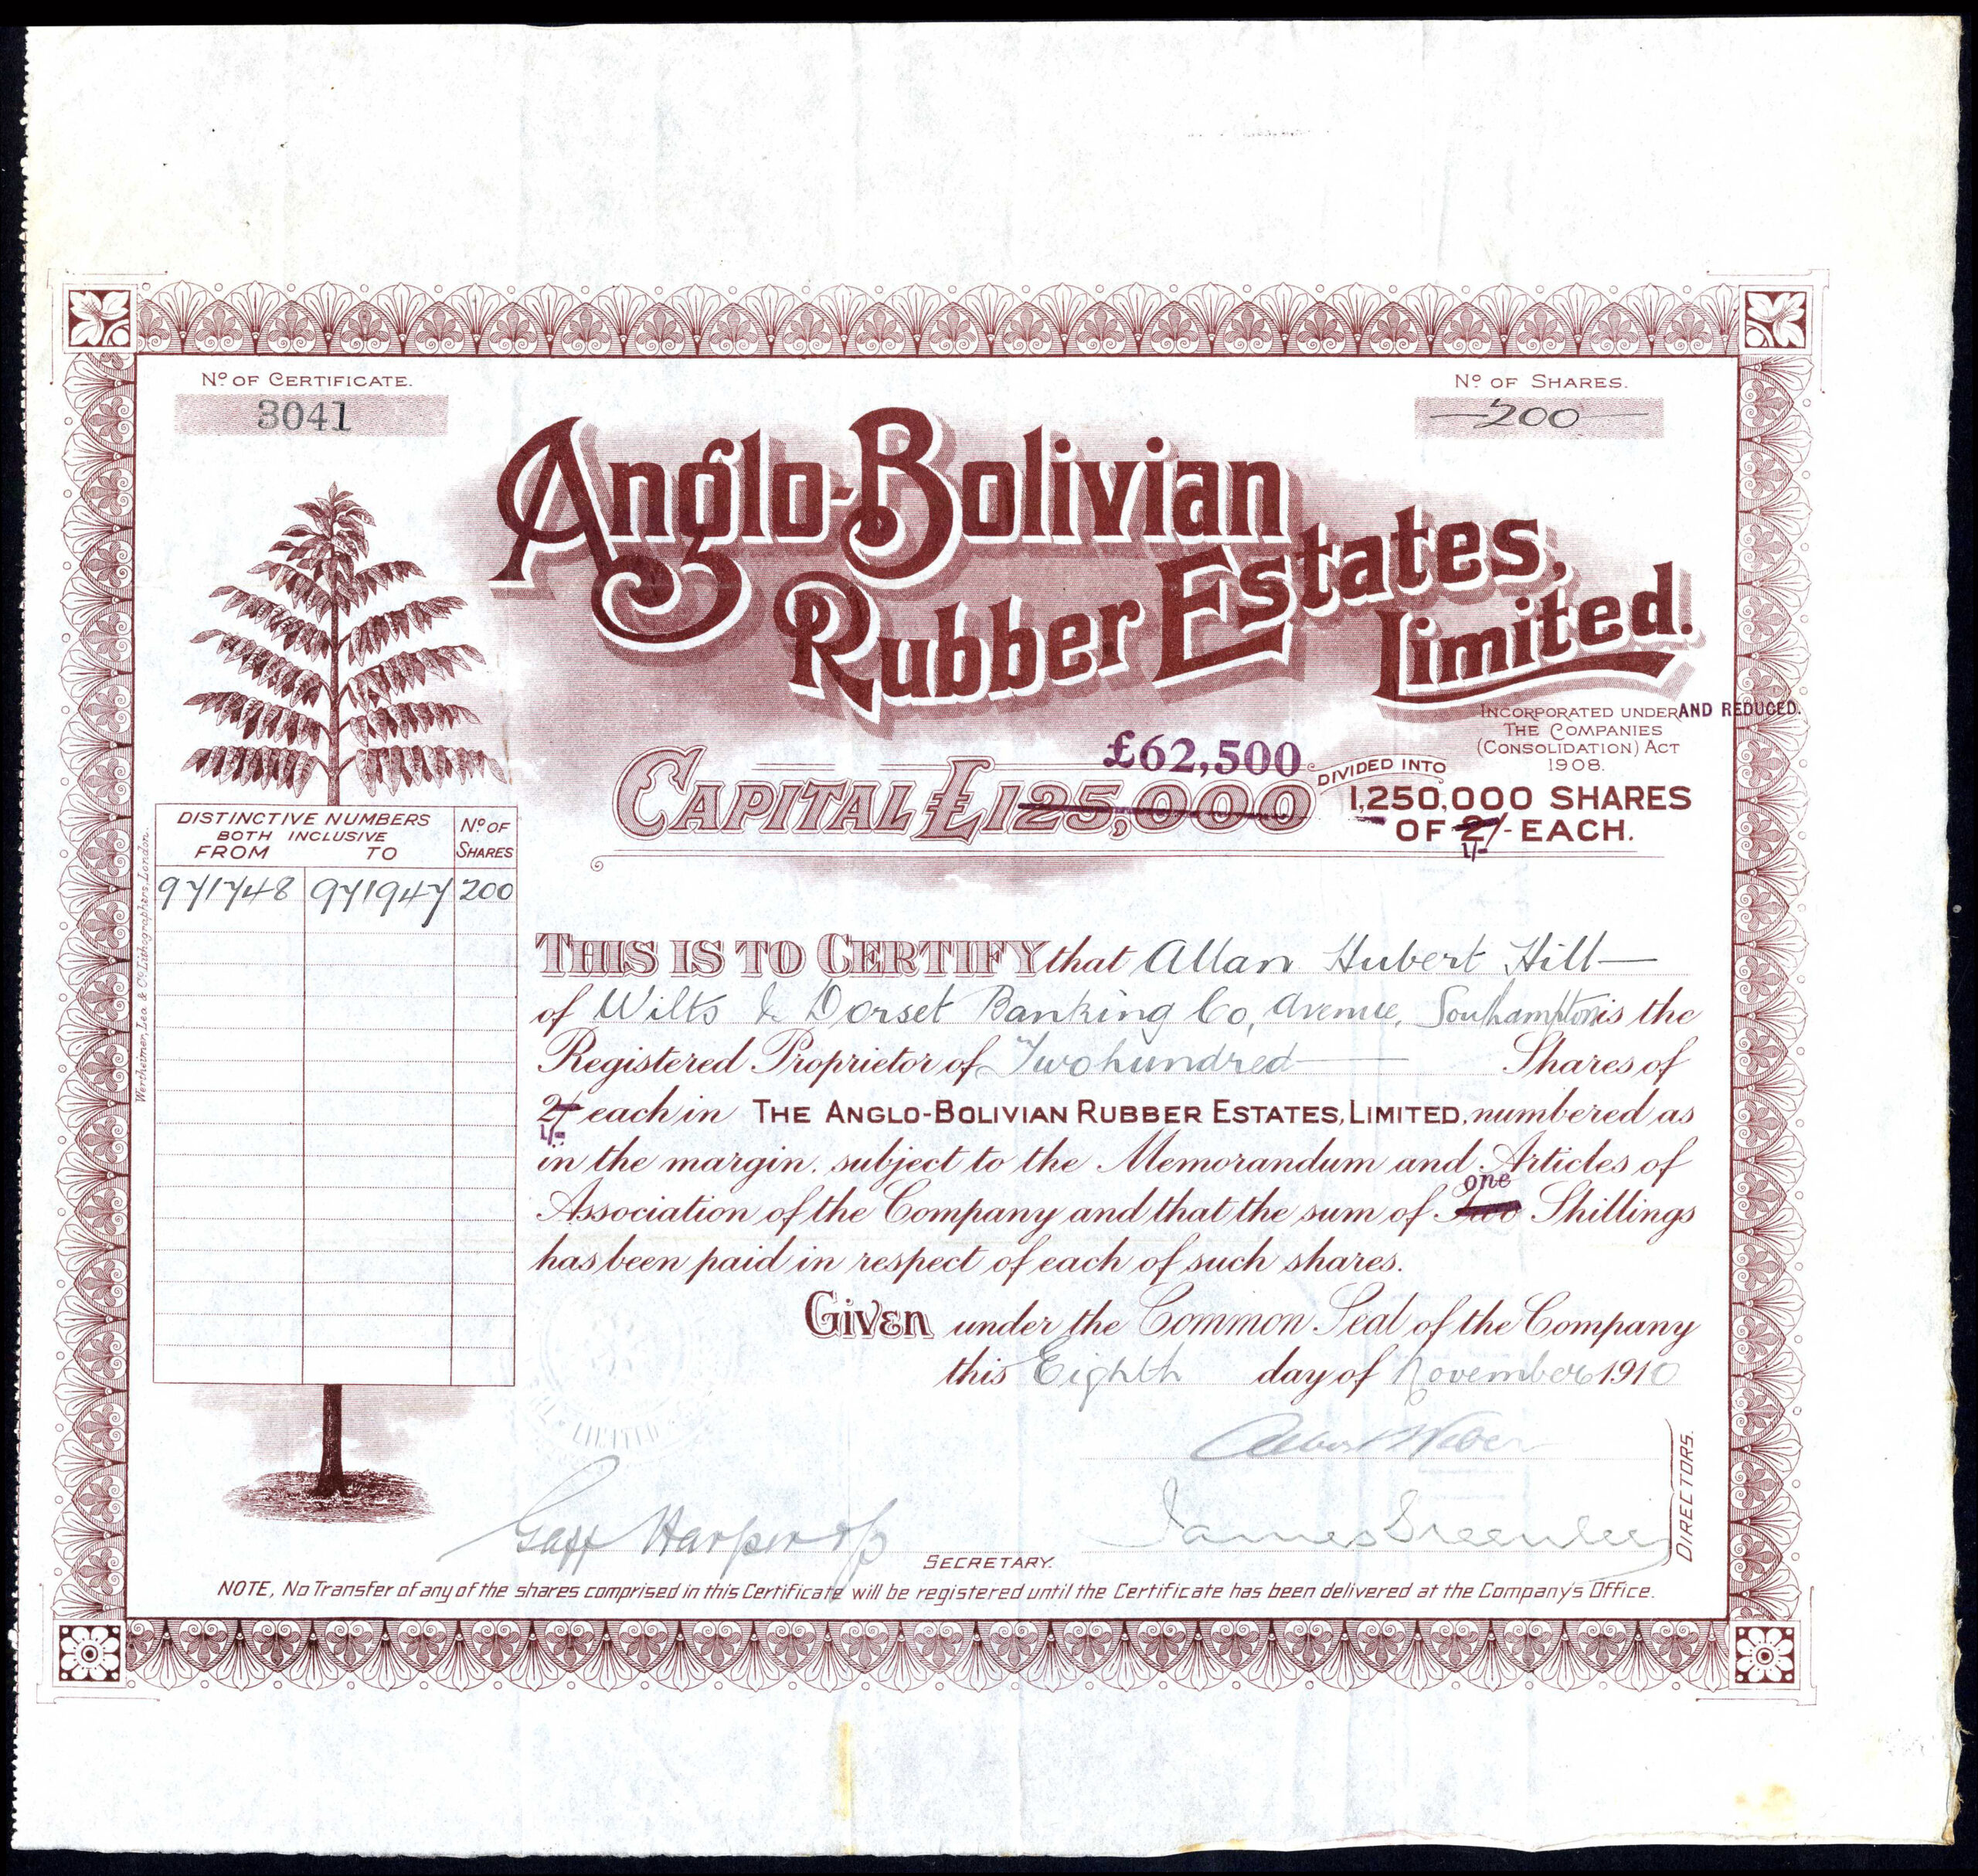 Nº OF CERTIFICATE.
3041
Nº OF SHARES.
200
Anglo-Bolivian
Rubber Estates,
Limited.
INCORPORATED UNDER AND REDUCED.
THE COMPANIES
(CONSOLIDATION) ACT
1908.
£62,500
CAPITAL £125,000 DIVIDED INTO
1,250,000 SHARES
OF 2/- EACH.
1/-
DISTINCTIVE NUMBERS
BOTH INCLUSIVE
FROM TO
Nº OF
SHARES
971748 971947 200
Wertheimer, Lea & Cº Lithographers, London.
THIS IS TO CERTIFY that Allan Hubert Hill
of Wilts & Dorset Banking Co, Avenue, Southampton is the
Registered Proprietor of Two hundred Shares of
2/- each in THE ANGLO-BOLIVIAN RUBBER ESTATES, LIMITED, numbered as
1/-
in the margin, subject to the Memorandum and Articles of
one
Association of the Company and that the sum of Two Shillings
has been paid in respect of each of such shares.
Given under the Common Seal of the Company
this Eighth day of November 1910
LIMITED
Albert Weber
James Greenlees
DIRECTORS.
SECRETARY.
NOTE, No Transfer of any of the shares comprised in this Certificate will be registered until the Certificate has been delivered at the Company's Office.